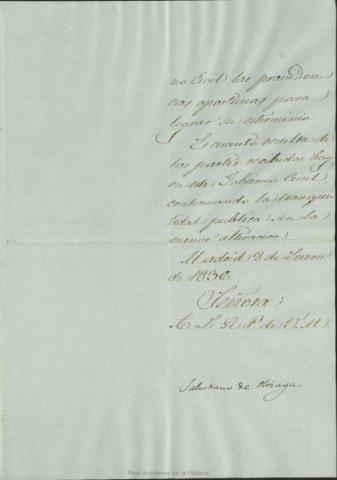 no Civil las providen-
cias oportunas para
lograr su esterminio.
Es cuanto resulta de
los partes recibidos hoy
en este Gobierno Civil
continuando la tranqui-
lidad publica sin la
menor alteracion.
Madrid 8 de Enero
de 1836.
Señora
A L. R. P. de V. M.
Salustiano de Olozaga
Real Academia de la Historia